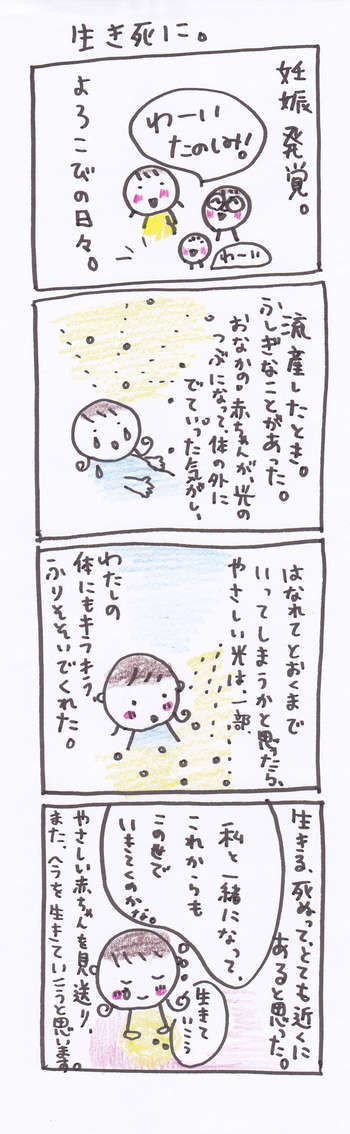 生き死に。
妊娠発覚。
わーい
たのしみ!
わーい
よろこびの日々。
流産したとき。
ふしぎなことがあった。
おなかの赤ちゃんが、光の
つぶになって、体の外に
でていった気がし、
はなれてとおくまで
いってしまうかと思ったら、
やさしい光は、一部
わたしの
体にもキラキラ
ふりそそいでくれた。
生きる、死ぬって、とても近くに
あると思った。
私と一緒になって、
これからも
この世で
いきてくのかな。
生きて
いこう
やさしい赤ちゃんを見送り、
また、今を生きていこうと思います。